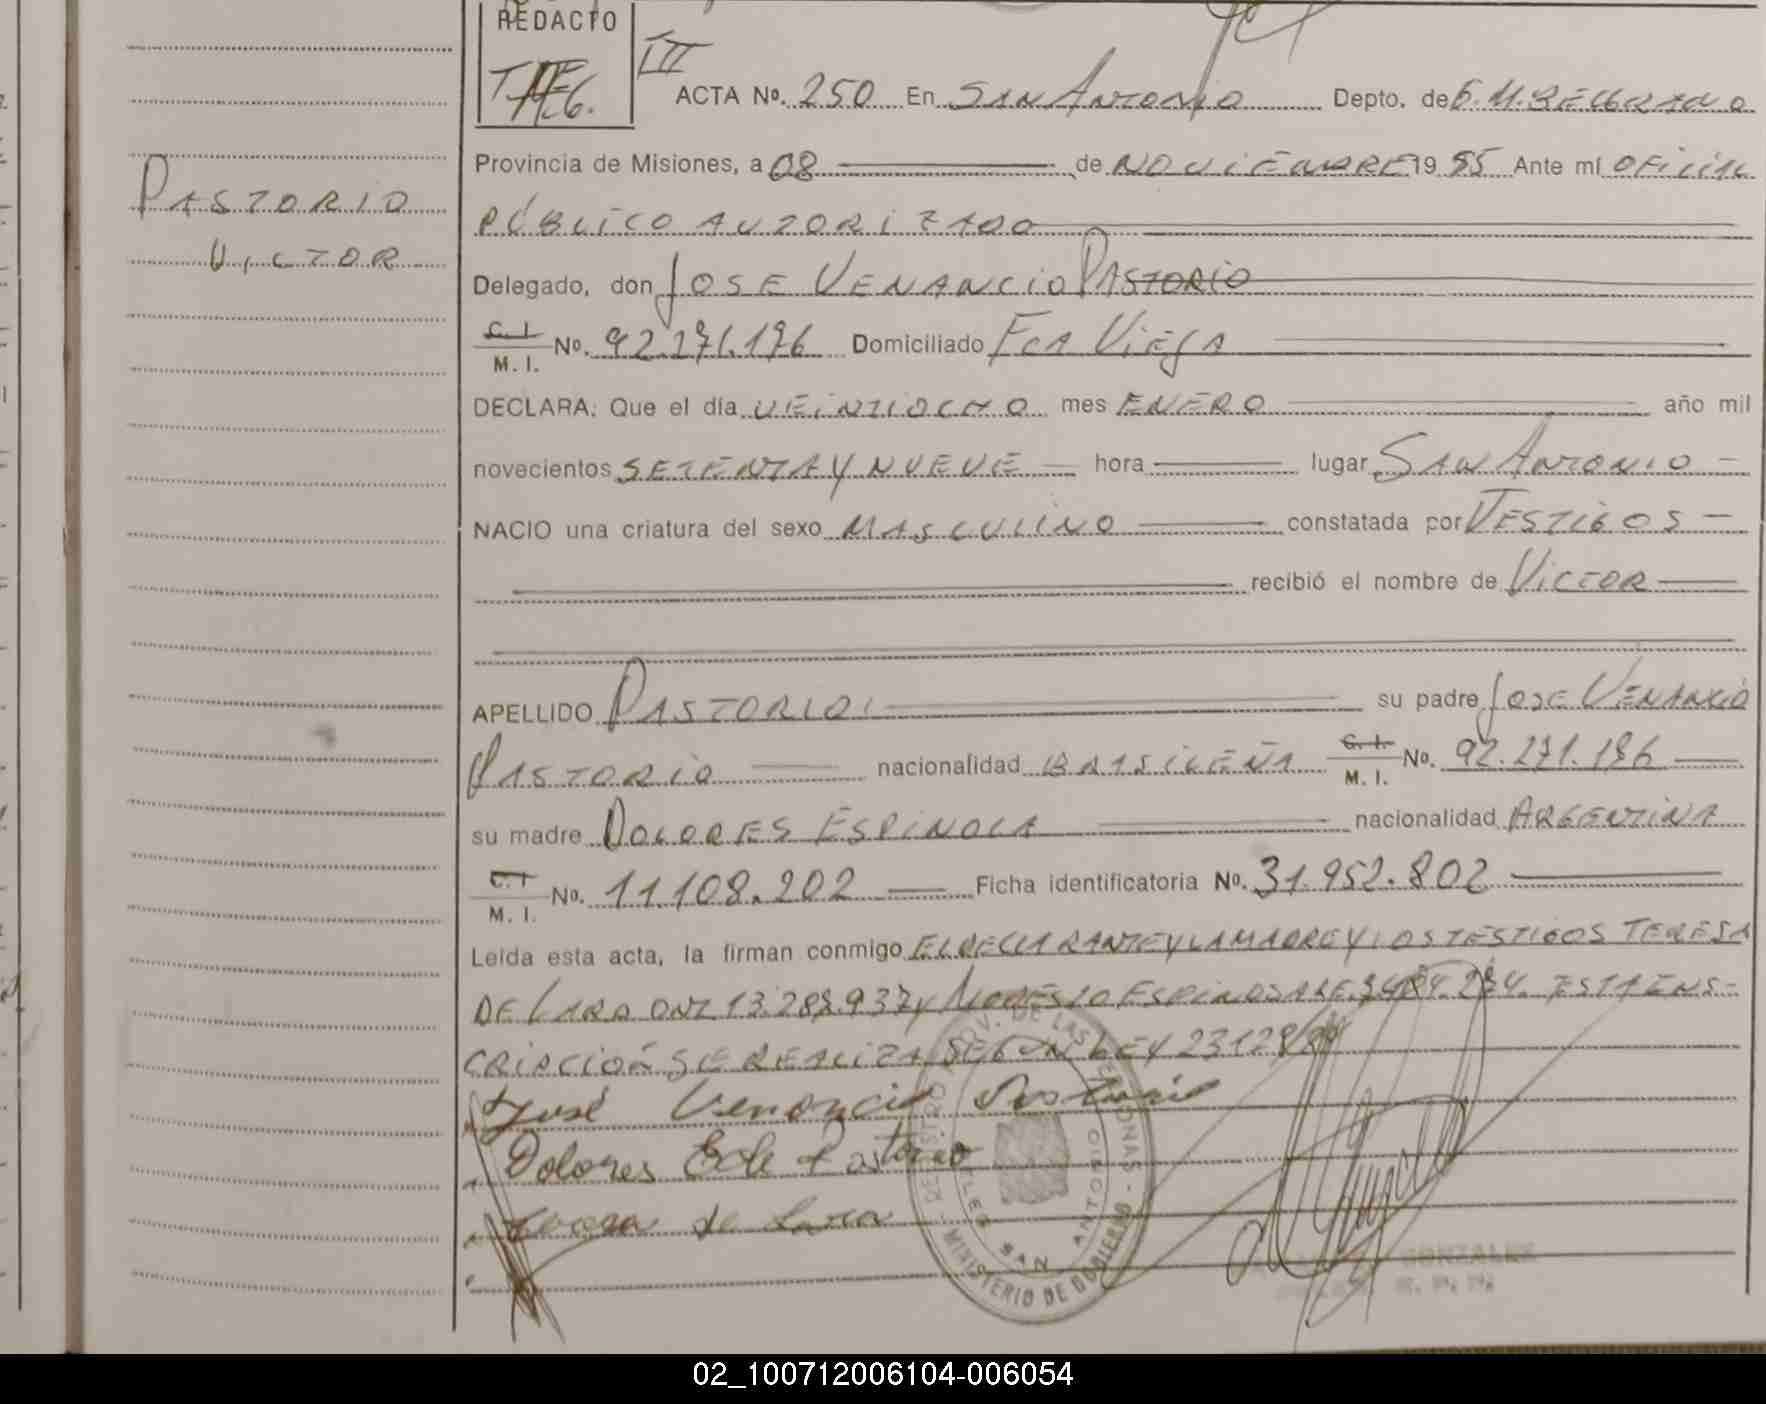 REDACTO
III
ACTA Nº. 250 En SAN ANTONIO Depto. de G.M.BELGRANO
PASTORIO
VICTOR
Provincia de Misiones, a 08 de NOVIEMBRE 1985 Ante mí OFICIAL
PÚBLICO AUTORIZADO
Delegado, don JOSE VENANCIO PASTORIO
C. I.
M. I. Nº. 92.271.196 Domiciliado FCA VIEJA
DECLARA: Que el día VEINTIOCHO mes ENERO año mil
novecientos SETENTA Y NUEVE hora lugar SAN ANTONIO
NACIO una criatura del sexo MASCULINO constatada por TESTIGOS
recibió el nombre de VICTOR
APELLIDO PASTORIO su padre JOSE VENANCIO
PASTORIO nacionalidad BRASILEÑA C. I. M. I. Nº. 92.271.196
su madre DOLORES ESPINOLA nacionalidad ARGENTINA
C. I.
M. I. Nº. 11.108.202 Ficha identificatoria Nº. 31.952.802
Leída esta acta, la firman conmigo EL DECLARANTE Y LA MADRE Y LOS TESTIGOS TERESA
DE LARA DNI 13.283.937 y MODESTO ESPINOSA ESTA INS-
CRIPCIÓN SE REALIZA SEGUN LEY 23128
José Venancio Pastorio
Dolores Pastorio
de Lara
REGISTRO PROV. DE LAS PERSONAS
SAN ANTONIO
MINISTERIO DE GOBIERNO
GONZALEZ
02_100712006104-006054